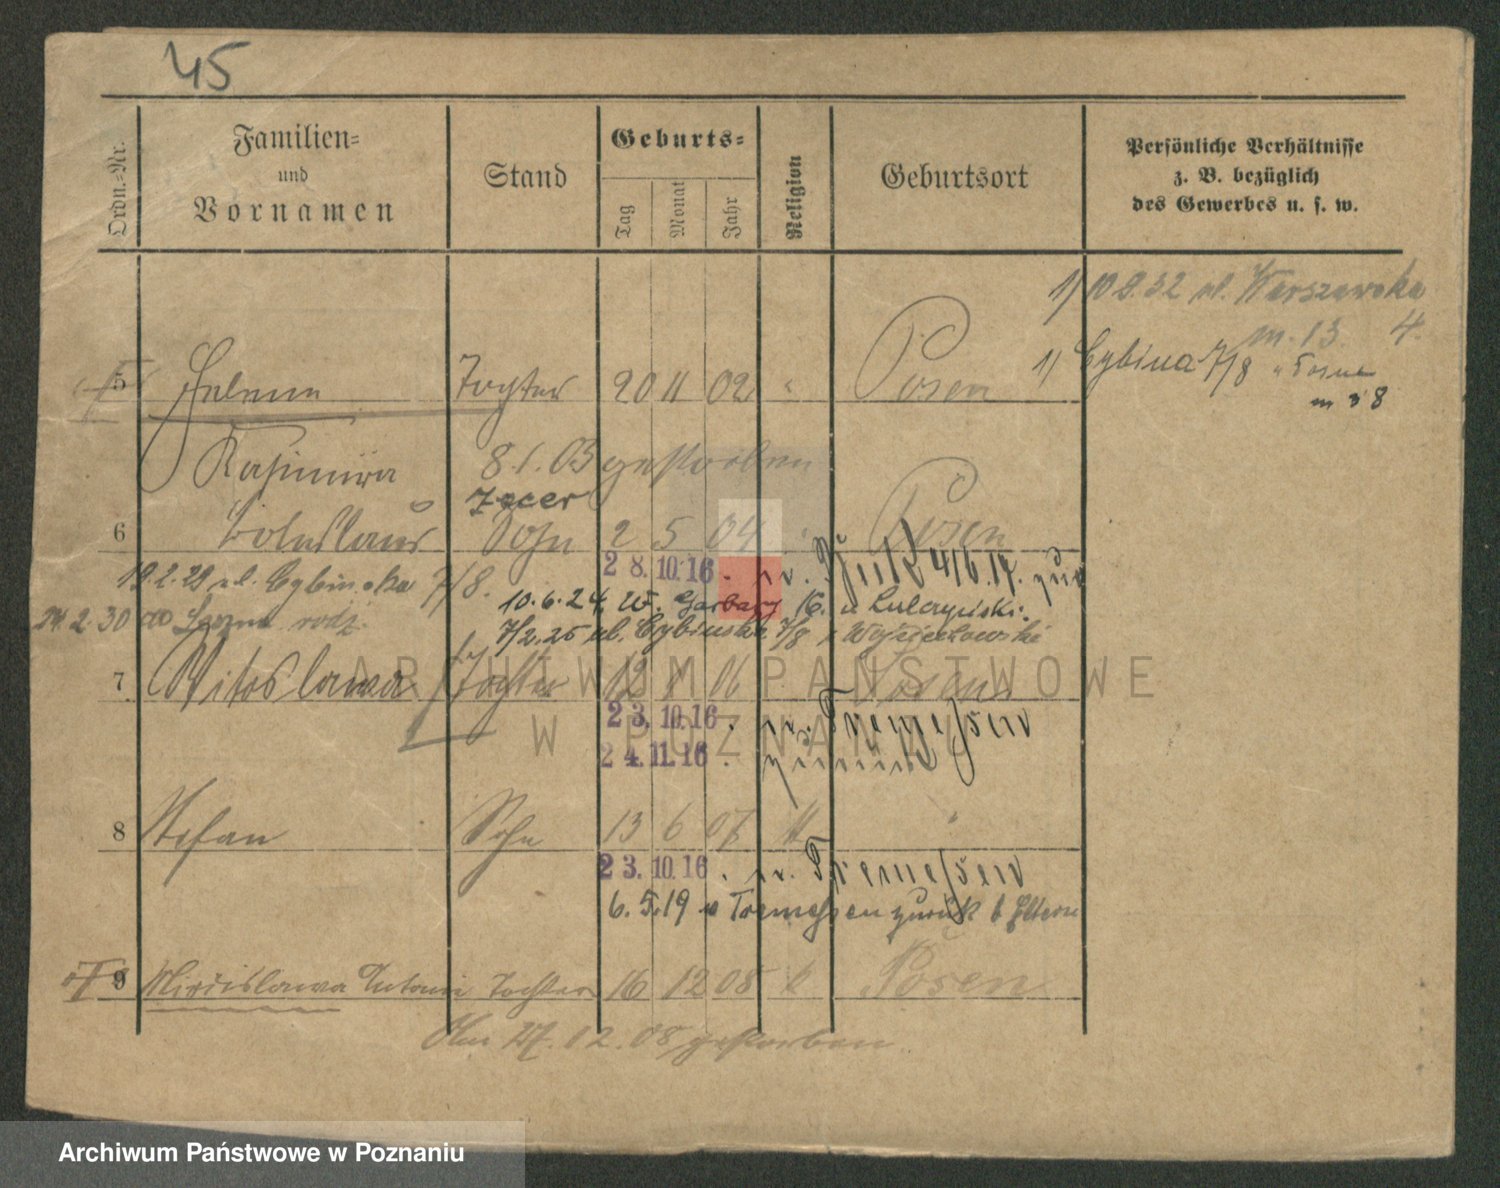 45
Ordn.-Nr.
Familien-
und
Vornamen
Stand
Geburts-
Tag
Monat
Jahr
Religion
Geburtsort
Persönliche Verhältnisse
z. B. bezüglich
des Gewerbes u. s. w.
1/ 10.2.32 ul. Warszawska
m. 13. 4.
1/ Cybina 7/8
m 8
5 Tochter 20 11 02 " Posen
Kasimira 8.1.03 gestorben
6 Boleslaus Sohn 2 5 04 " Posen
28.10.16.
19.2.29 ul. Cybińska 7/8.
10.6.24 W. Garbary 16. u Lulczyński.
24.2.30
7/2.25 ul. Cybińska 7/8 u Wojciechowski
7 Witoslawa Tochter 12 1 06 Posen
23.10.16. n. Tremessen
24.11.16.
8 Stefan Sohn 13 6 07 "
23.10.16. n. Tremessen
6.5.19 v Tremessen zurück b Eltern
9 Miecislawa Tochter 16 12 08 k Posen
Am 27.12.08 gestorben
ARCHIWUM PAŃSTWOWE
W POZNANIU
Archiwum Państwowe w Poznaniu